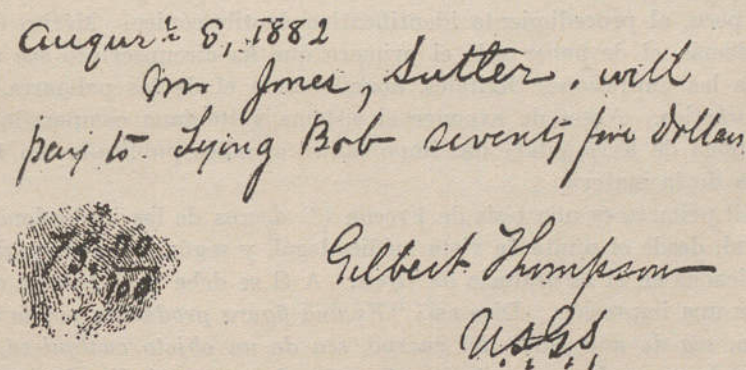 August 8, 1882
Mr Jones, Sutler, will
pay to Lying Bob seventy five Dollars
75.00/100
Gilbert Thompson
U.S.G.S.